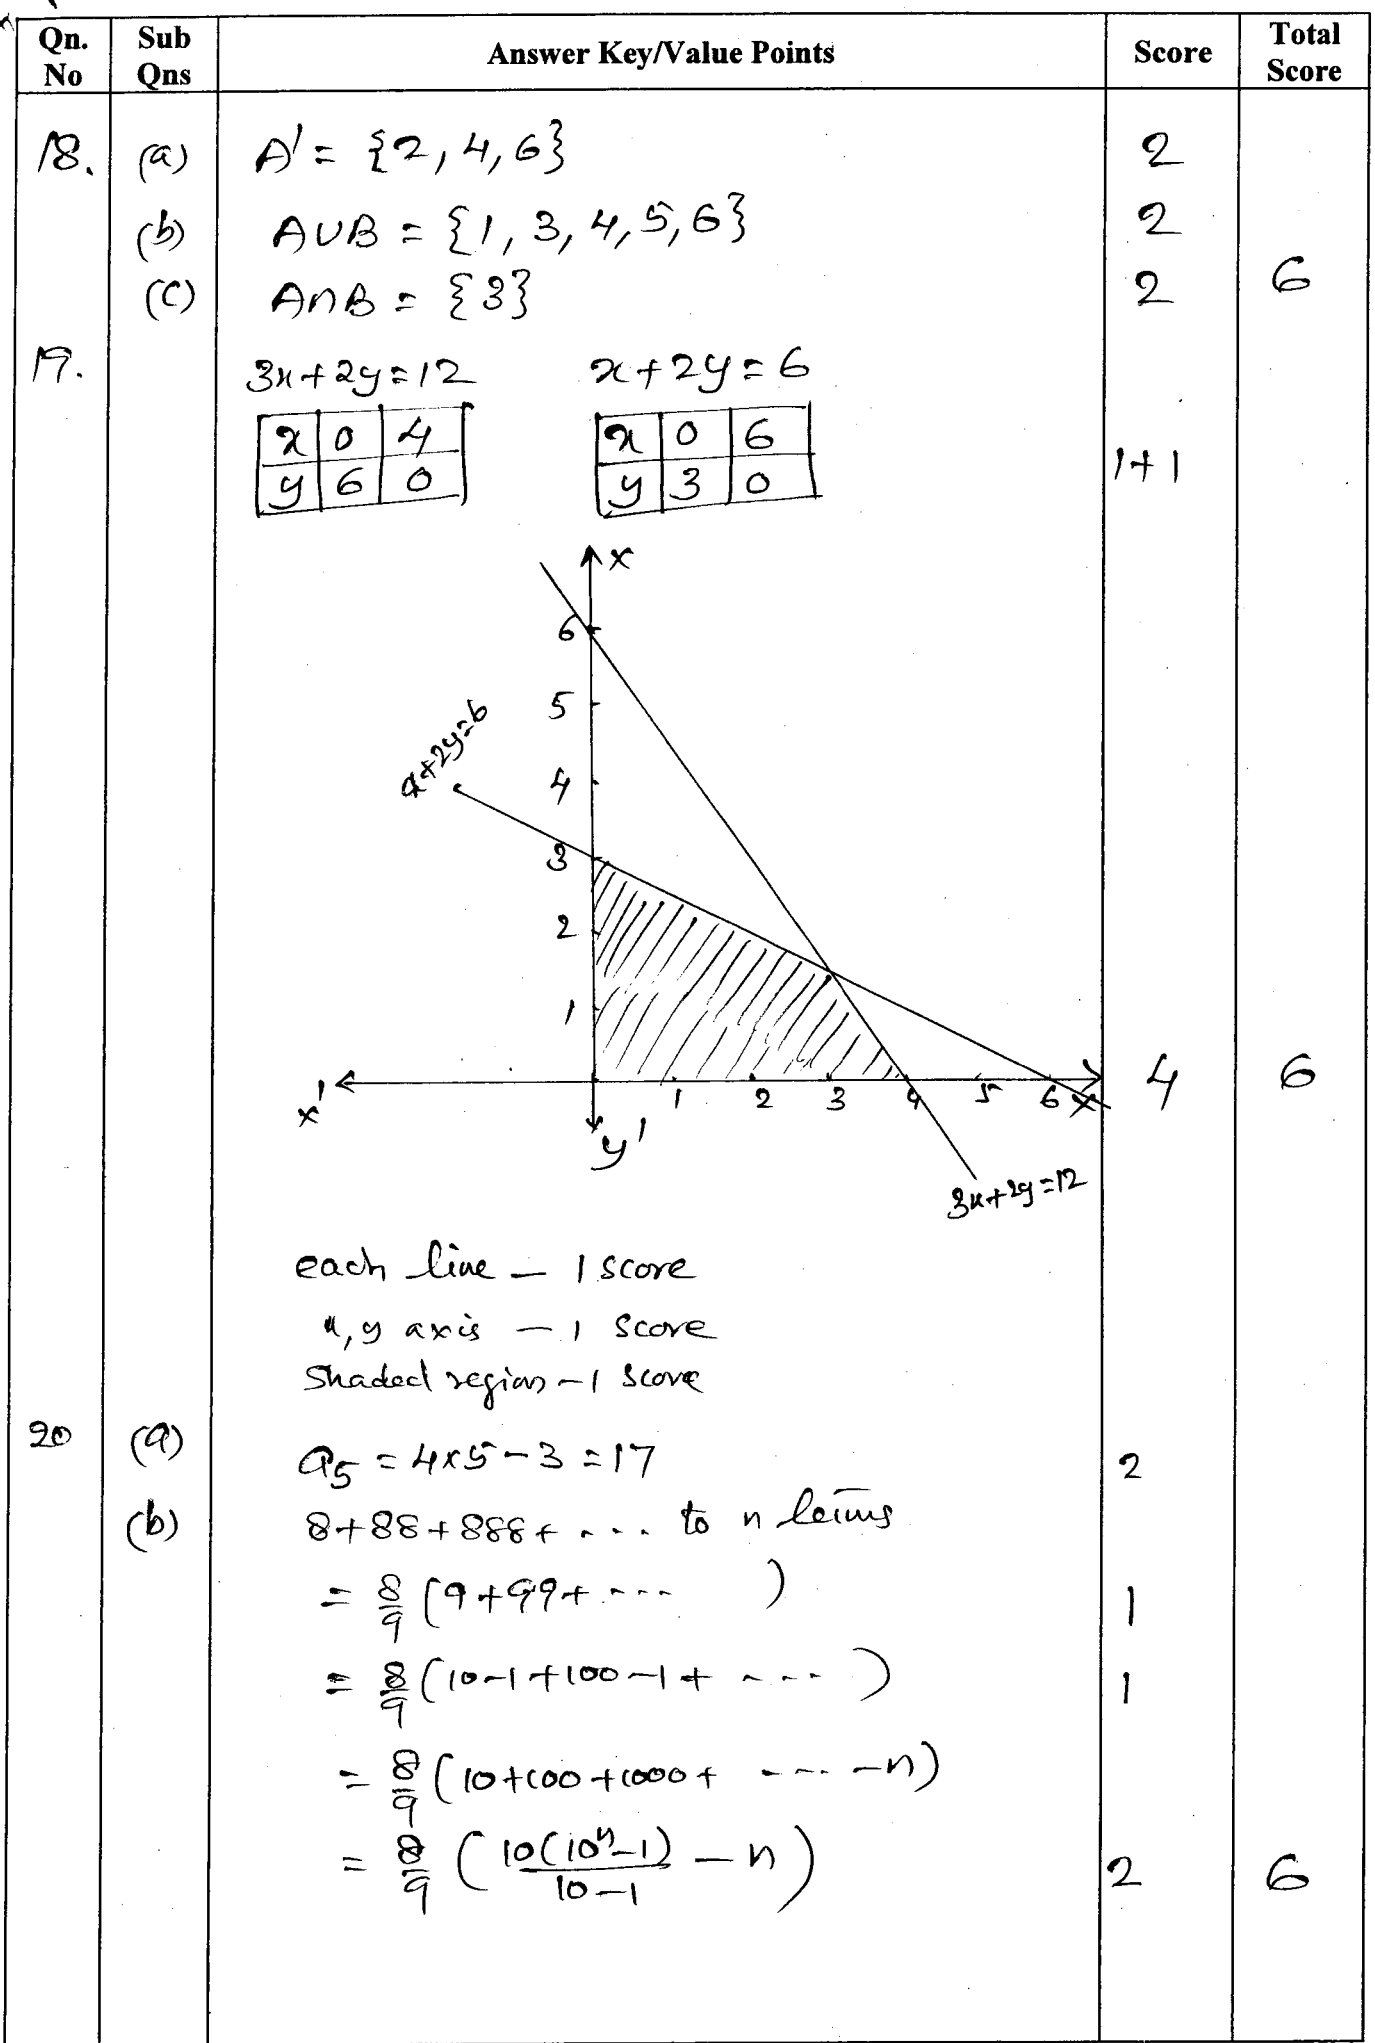 Qn. No | Sub Qns | Answer Key/Value Points | Score | Total Score
18. (a) A' = {2, 4, 6} 2
(b) A∪B = {1, 3, 4, 5, 6} 2
(c) A∩B = {3} 2 6
19. 3x+2y=12 x+2y=6
x 0 4 x 0 6
y 6 0 y 3 0
1+1
x
6
5
x+2y=6
4
3
2
1
4 6
x' 1 2 3 4 5 6 x
y'
3x+2y=12
each line – 1 score
x, y axis – 1 score
Shaded region – 1 score
20 (a) a₅ = 4×5-3 = 17 2
(b) 8+88+888+ .... to n terms
= 8/9 (9+99+.... ) 1
= 8/9 (10-1+100-1+ ....) 1
= 8/9 (10+100+1000+ .... -n)
= 8/9 (10(10ⁿ-1)/10-1 - n) 2 6